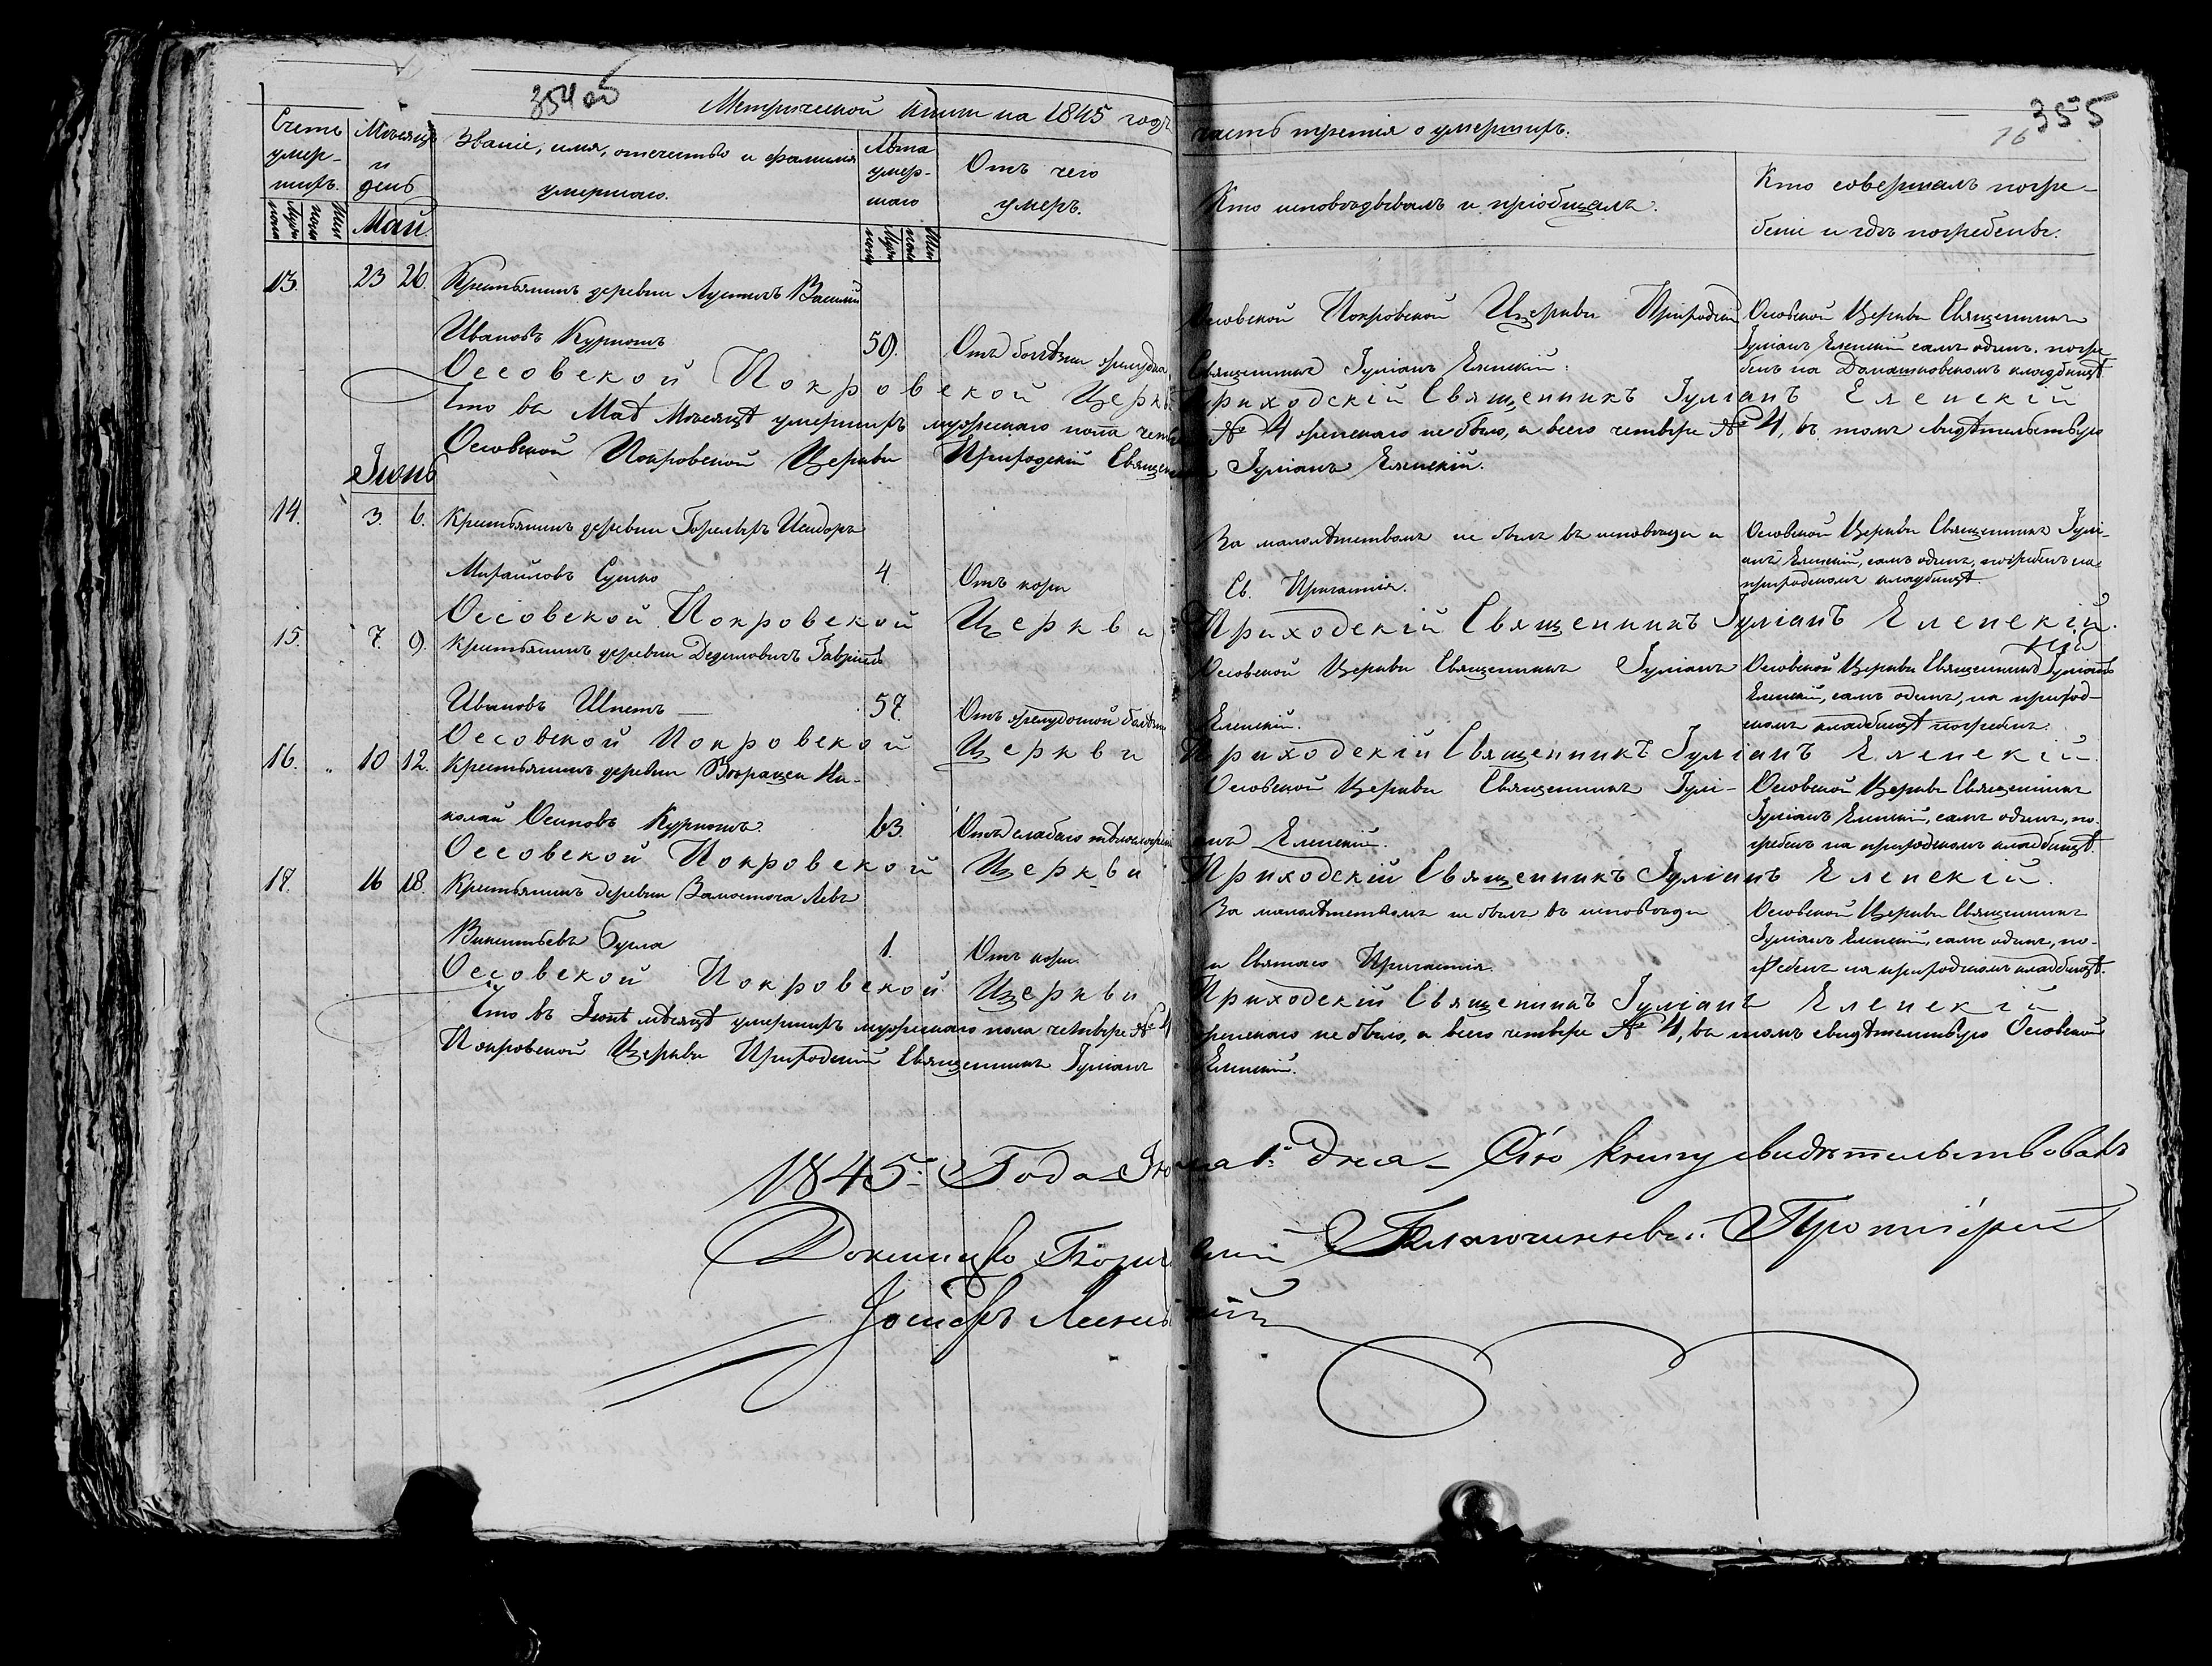 354 об
Метрической книги на 1845 годъ
часть третія о умершихъ.
355
16
Счетъ умер-шихъ.
Мѣсяцъ и день
Званіе, имя, отечество и фамилія умершаго.
Лѣта умер-шаго
Отъ чего умеръ.
Кто исповѣдывалъ и пріобщалъ.
Кто совершалъ погре-
беніе и гдѣ погребенъ.
Май
13. 23 26. Крестьянинъ деревни Василій
Ивановъ Курношъ 59. Отъ болѣзни
Осовской Покровской Церкви Приходскій
Священникъ Іуліанъ Еленскій.
Осовской Церкви Священникъ
Іуліанъ Еленскій самъ одинъ. погре-
бенъ на кладбищѣ
Оссовской Покровской Церкви Приходскій Священникъ Іуліанъ Еленскій
Что въ Маѣ Мѣсяцѣ умершихъ мужескаго пола четыре № 4 женскаго не было, а всего четыре № 4, въ томъ свидѣтельствую
Осовской Покровской Церкви Приходскій Священникъ Іуліанъ Еленскій.
Іюнь
14. 3. 6. Крестьянинъ деревни Исидоръ
Михайловъ Сушко 4. Отъ кори
За малолѣтствомъ не былъ въ исповѣди и
Св. Причастія.
Осовской Церкви Священникъ Іулі-
анъ Еленскій, самъ одинъ, погребенъ на
приходскомъ кладбищѣ.
Оссовской Покровской Церкви Приходскій Священникъ Іуліанъ Еленскій.
15. 7. 9. Крестьянинъ деревни Дедиловичъ Гавріилъ
Ивановъ Шпетъ 57. Отъ желудочной болѣзни
Осовской Церкви Священникъ Іуліанъ
Еленскій.
Осовской Церкви Священникъ Іуліанъ
Еленскій, самъ одинъ, на приход-
скомъ кладбищѣ погребенъ.
Оссовской Покровской Церкви Приходскій Священникъ Іуліанъ Еленскій.
16. 10 12. Крестьянинъ деревни Ни-
колай Осиповъ Курношъ. 63. Отъ слабаго
Осовской Церкви Священникъ Іулі-
анъ Еленскій.
Осовской Церкви Священникъ
Іуліанъ Еленскій, самъ одинъ, по-
гребенъ на приходскомъ кладбищѣ.
Оссовской Покровской Церкви Приходскій Священникъ Іуліанъ Еленскій.
17. 16 18. Крестьянинъ деревни Замосточа Левъ
Викентьевъ Бурла 1. Отъ кори.
За малолѣтствомъ не былъ въ исповѣди
и Святаго Причастія.
Осовской Церкви Священникъ
Іуліанъ Еленскій, самъ одинъ, по-
гребенъ на приходскомъ кладбищѣ.
Оссовской Покровской Церкви Приходскій Священникъ Іуліанъ Еленскій
Что въ Іюнѣ мѣсяцѣ умершихъ мужескаго пола четыре № 4 женскаго не было, а всего четыре № 4, въ томъ свидѣтельствую Осовской
Покровской Церкви Приходскій Священникъ Іуліанъ Еленскій.
1845. Года 1. Дня Сію книгу свидѣтельствовалъ
Докшицко Благочинный Протоіерей
Іосифъ